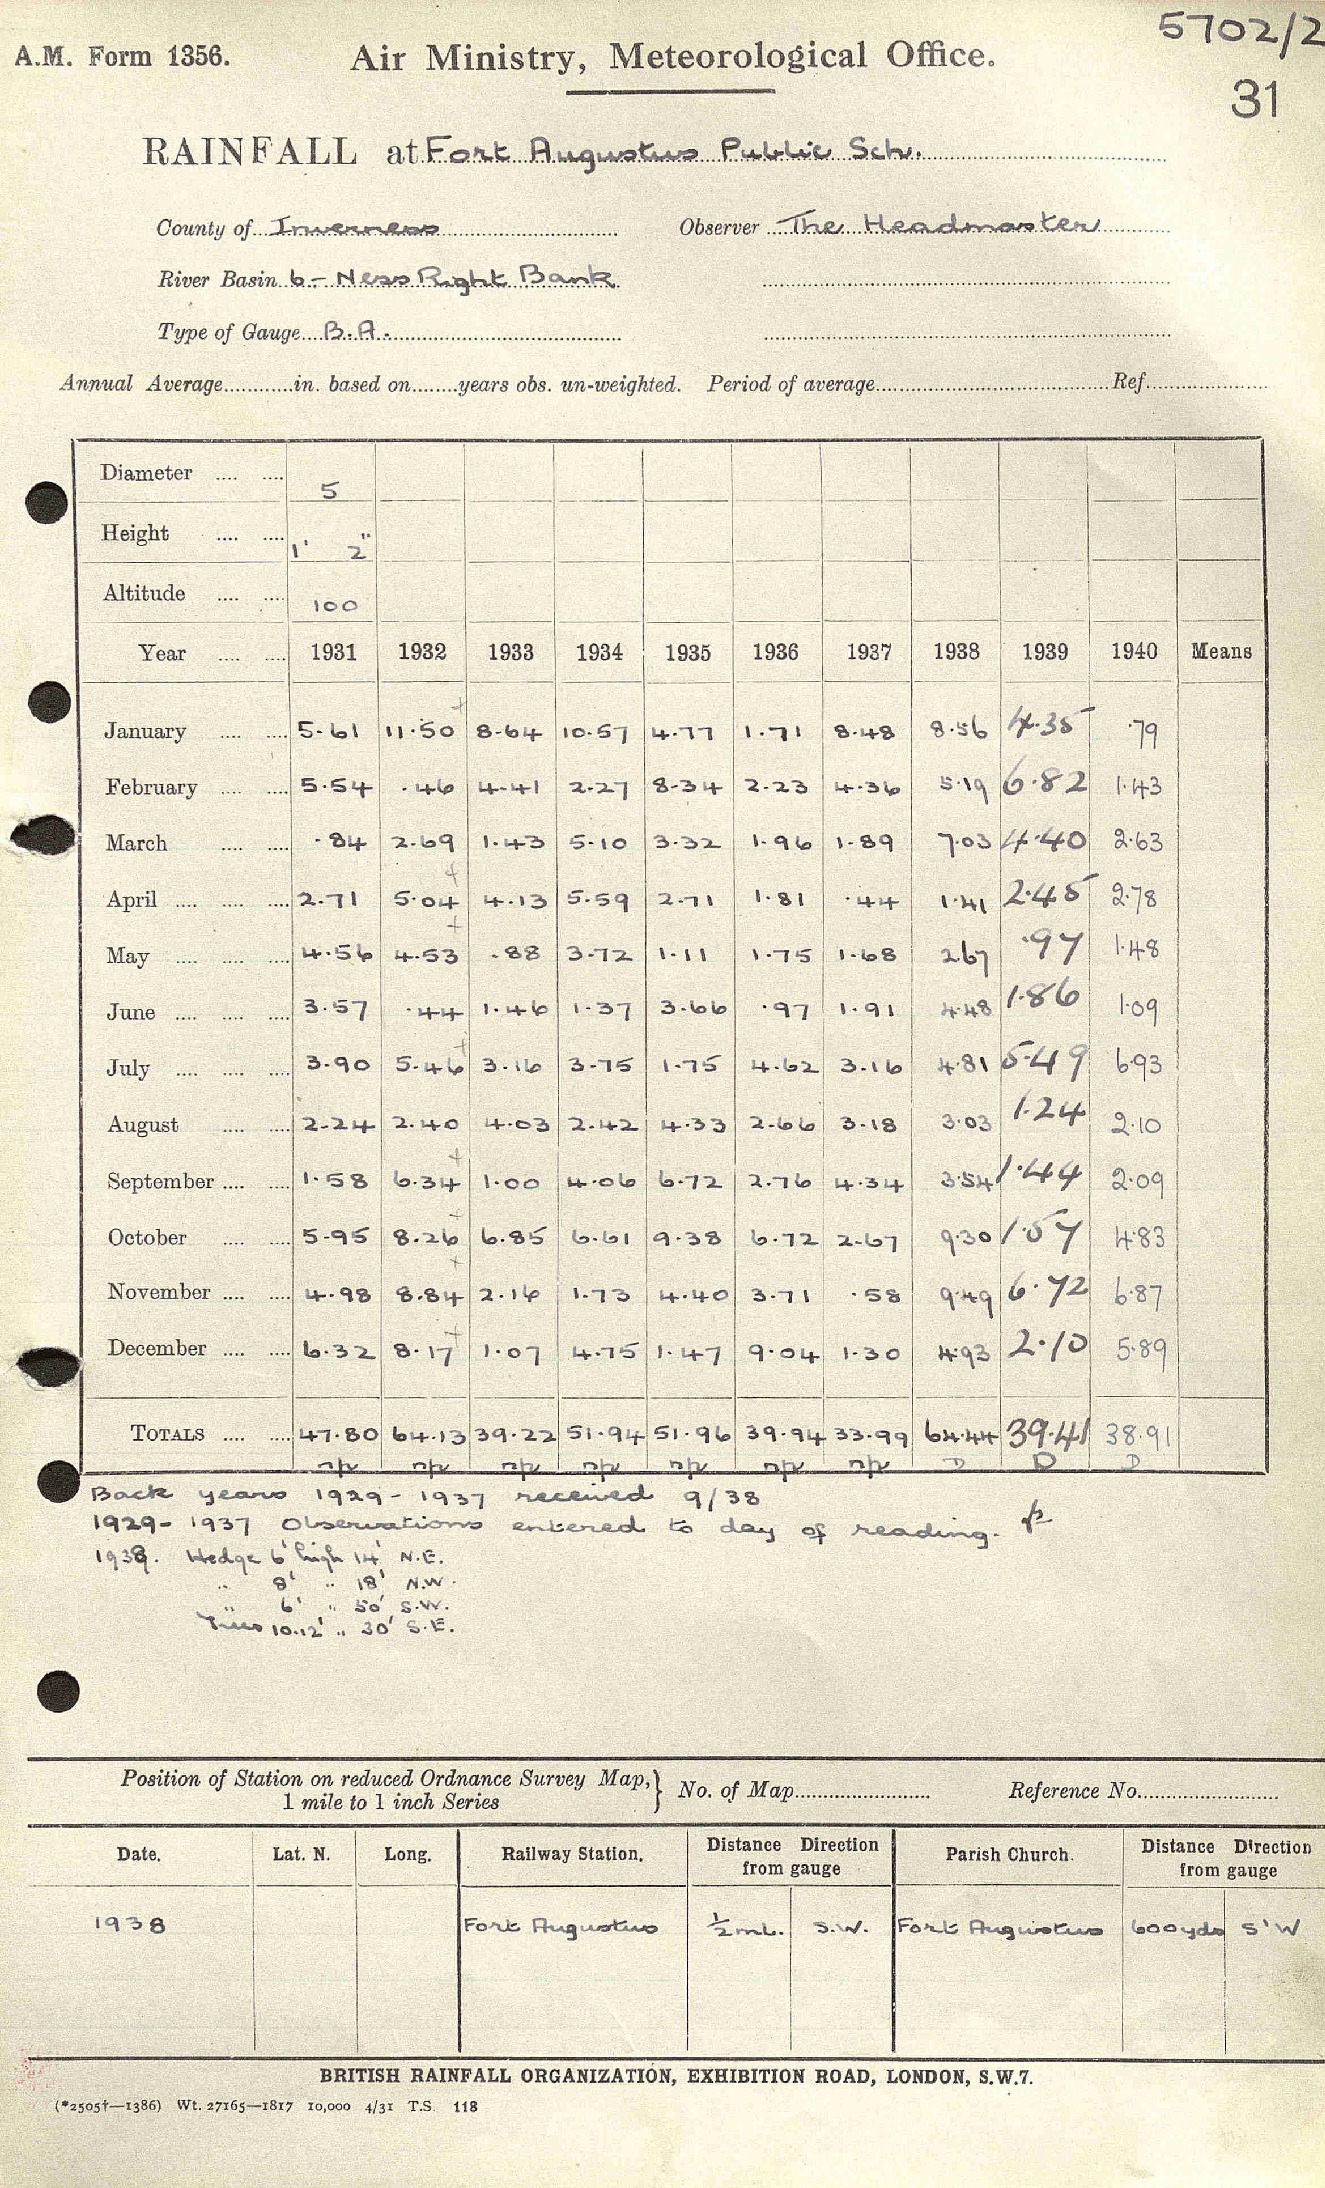 5702/2
A.M. Form 1356. Air Ministry, Meteorological Office.
31
RAINFALL at Fort Augustus Public Sch.
County of Inverness Observer The Headmaster
River Basin 6 - Ness Right Bank
Type of Gauge B.A.
Annual Average in. based on years obs. un-weighted. Period of average Ref.
Diameter 5
Height 1' 2"
Altitude 100
Year 1931 1932 1933 1934 1935 1936 1937 1938 1939 1940 Means
January 5.61 11.50 8.64 10.57 4.77 1.71 8.48 8.56 4.35 .79
February 5.54 .46 4.41 2.27 8.34 2.23 4.36 5.19 6.82 1.43
March .84 2.69 1.43 5.10 3.32 1.96 1.89 7.03 4.40 2.63
April 2.71 5.04 4.13 5.59 2.71 1.81 .44 1.41 2.45 2.78
May 4.56 4.53 .88 3.72 1.11 1.75 1.68 2.67 .97 1.48
June 3.57 .44 1.46 1.37 3.66 .97 1.91 4.48 1.86 1.09
July 3.90 5.46 3.16 3.75 1.75 4.62 3.16 4.81 5.49 6.93
August 2.24 2.40 4.03 2.42 4.33 2.66 3.18 3.03 1.24 2.10
September 1.58 6.34 1.00 4.06 6.72 2.76 4.34 3.54 1.44 2.09
October 5.95 8.26 6.85 6.61 9.38 6.72 2.67 9.30 1.57 4.83
November 4.98 8.84 2.16 1.73 4.40 3.71 .58 9.49 6.72 6.87
December 6.32 8.17 1.07 4.75 1.47 9.04 1.30 4.93 2.10 5.89
TOTALS 47.80 64.13 39.22 51.94 51.96 39.94 33.99 64.44 39.41 38.91
D D D
Back years 1929 - 1937 received 9/38
1929 - 1937 Observations entered to day of reading.
1938. Hedge 6' high 14' N.E.
" 8' " 18' N.W.
" 6' " 50' S.W.
Trees 10.12' " 30' S.E.
Position of Station on reduced Ordnance Survey Map, 1 mile to 1 inch Series } No. of Map Reference No.
Date. Lat. N. Long. Railway Station. Distance Direction from gauge Parish Church. Distance Direction from gauge
1938 Fort Augustus ½ ml. S.W. Fort Augustus 600 yds S'W
BRITISH RAINFALL ORGANIZATION, EXHIBITION ROAD, LONDON, S.W.7.
(*2505†—1386) Wt. 27165—1817 10,000 4/31 T.S. 118